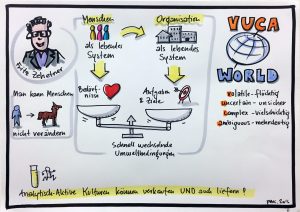 Fritz Zehetner
Man kann Menschen
nicht verändern
Menschen
als lebendes
System
Organisation
als lebendes
System
Bedürf-
nisse
Aufgaben
& Ziele
Schnell wechselnde
Umweltbedingungen
VUCA
WORLD
volatile - flüchtig
uncertain - unsicher
complex - vielschichtig
ambiguous - mehrdeutig
Analytisch-Aktive Kulturen können verkaufen UND auch liefern!